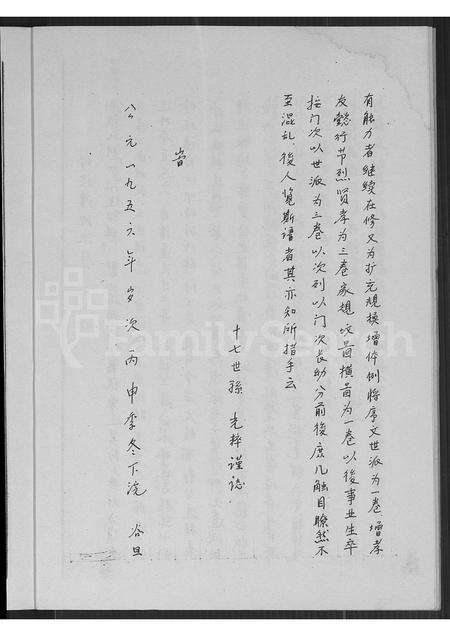 有触力者继续在修又为扩充规模增体例将序文世派为一卷增孝
友懿行节烈贤孝为三卷家规坟昌图横昌为一卷以後事业生卒
按门次以世派为三卷以次列以门次长幼分前後庶几触目瞭然不
至混乱後人览斯谱者其亦知所措手云
十七世孫 光粹谨誌
峕
公元一九五六年岁次丙申季冬下浣 谷旦
FamilySearch